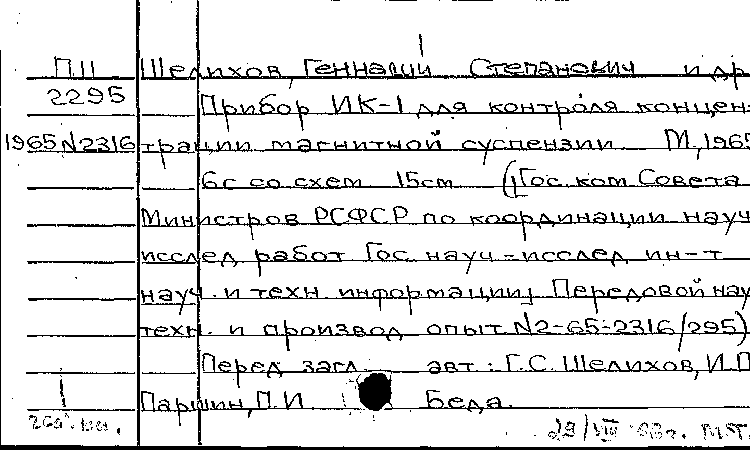 П.II Шелихов, Геннадий Степанович и др
2295 Прибор ИК-1 для контроля концен-
1965 N2316 трации магнитной суспензии М, 1965
6с со схем 15см (Гос. ком Совета
Министров РСФСР по координации науч
исслед работ Гос. науч-исслед ин-т
науч. и техн. информации) Передовой нау
техн. и производ опыт. N2-65-2316/295)
Перед загл авт: Г.С. Шелихов, И.П
Паршин, П.И. Беда.